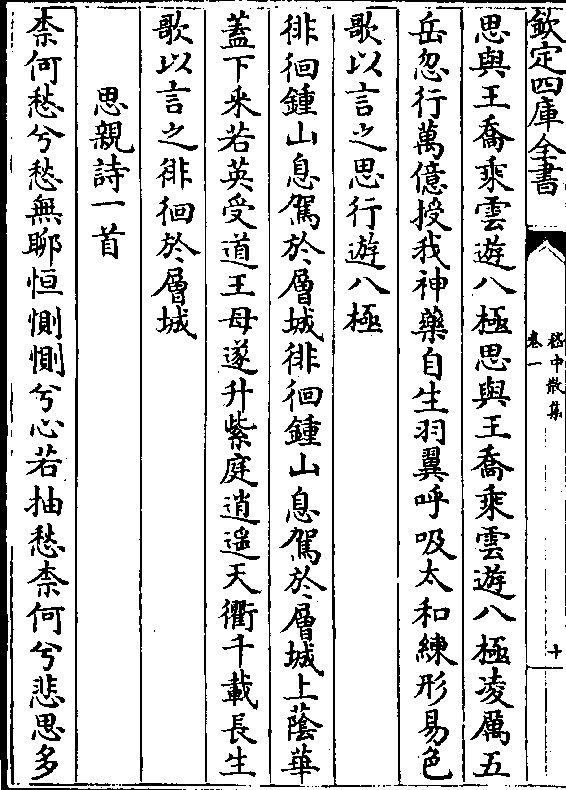 欽定四庫全書
嵇中散集
卷一
十
思與王喬乘雲遊八極思與王喬乘雲遊八極凌厲五
岳忽行萬億授我神藥自生羽翼呼吸太和練形易色
歌以言之思行遊八極
徘徊鍾山息駕於層城徘徊鍾山息駕於層城上蔭華
蓋下采若英受道王母遂升紫庭逍遙天衢千載長生
歌以言之徘徊於層城
思親詩一首
柰何愁兮愁無聊恒惻惻兮心若抽愁柰何兮悲思多